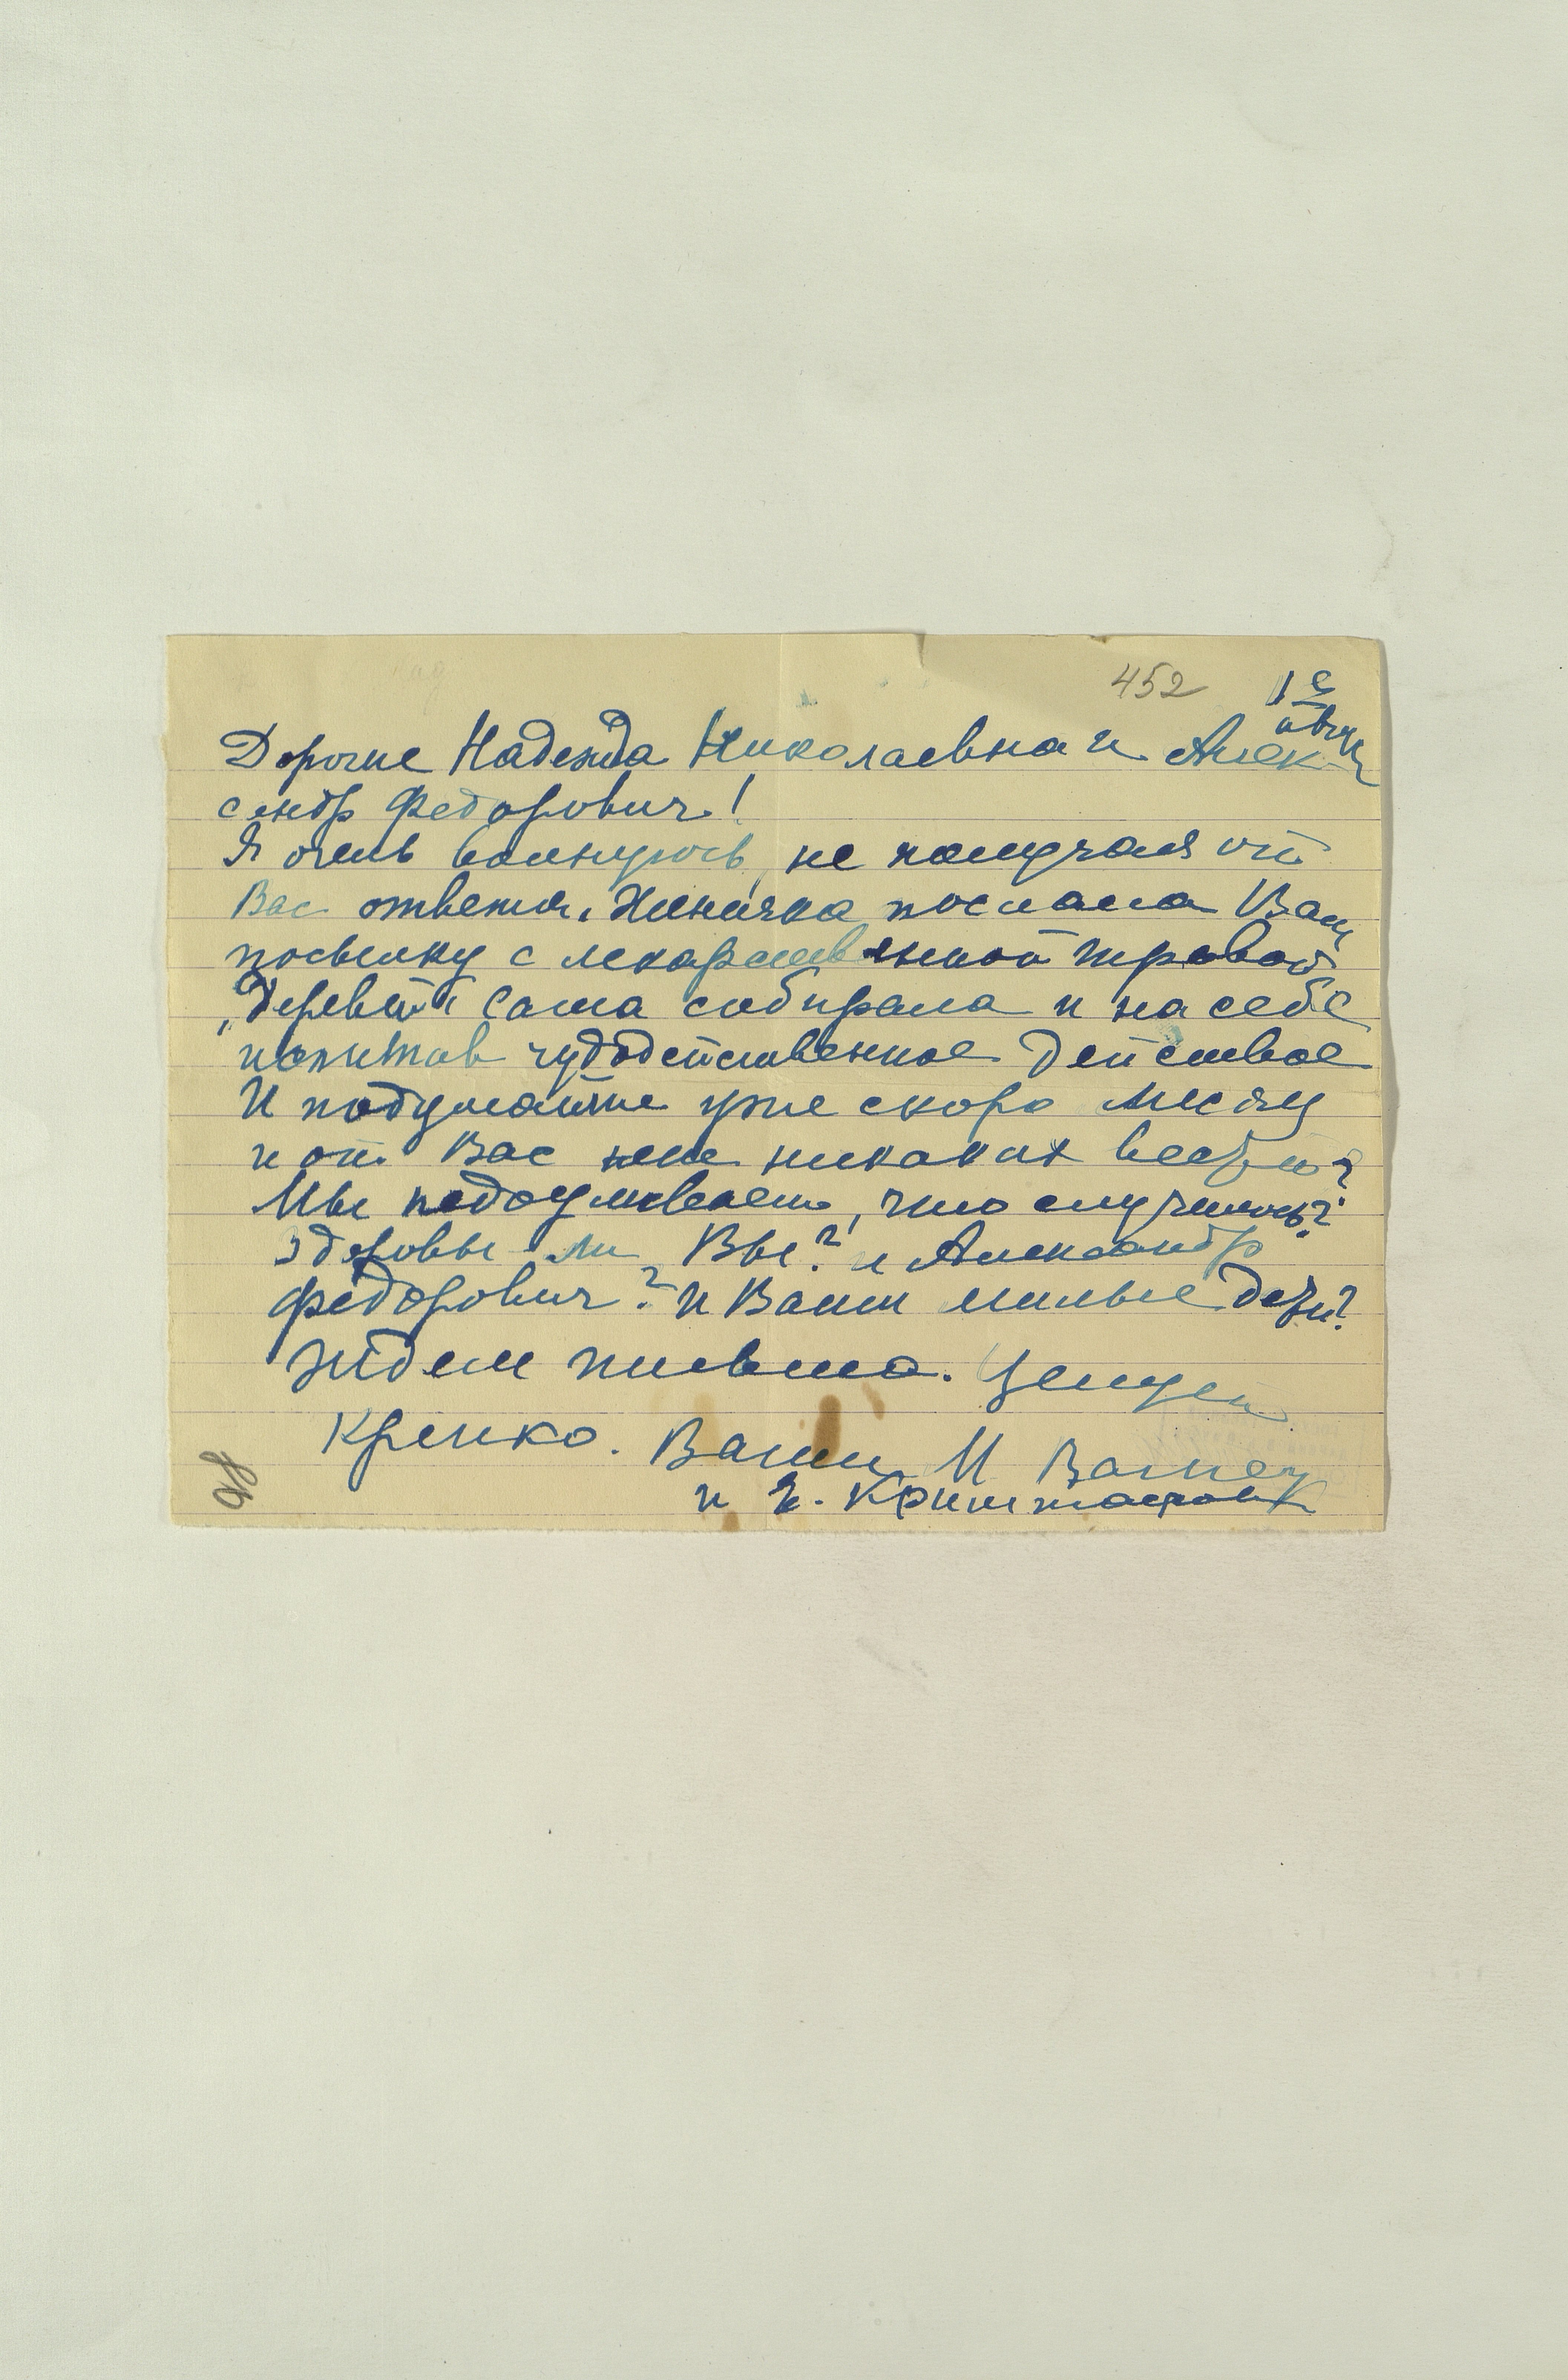 452
1е
Дорогие Надежда Николаевна и Алек-
сандр Федорович!
Я очень волнуюсь, не получая от
Вас ответа. Ниночка послала Вам
посылку с лекарственной травой
сама собирала и на себе
испытав чудодейственное действое
И подумайте уже скоро месяц
и от Вас нет никаких вестей?
Мы недоумеваем, что случилось?
здоровы ли Вы? и Александр
Федорович? и Ваши милые дети?
Ждем письма. Целуем
Крепко. Ваши М Вагнер
и